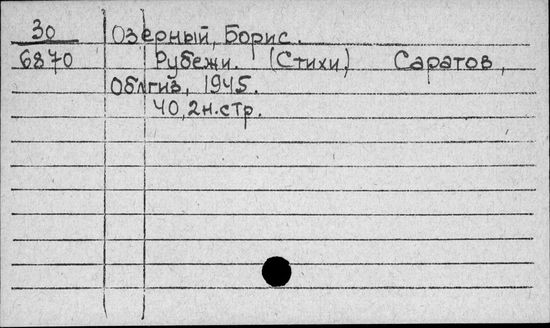 30 Озерный, Борис.
6870 Рубежи. (Стихи) Саратов,
Облгиз, 1945.
40,2н.стр.